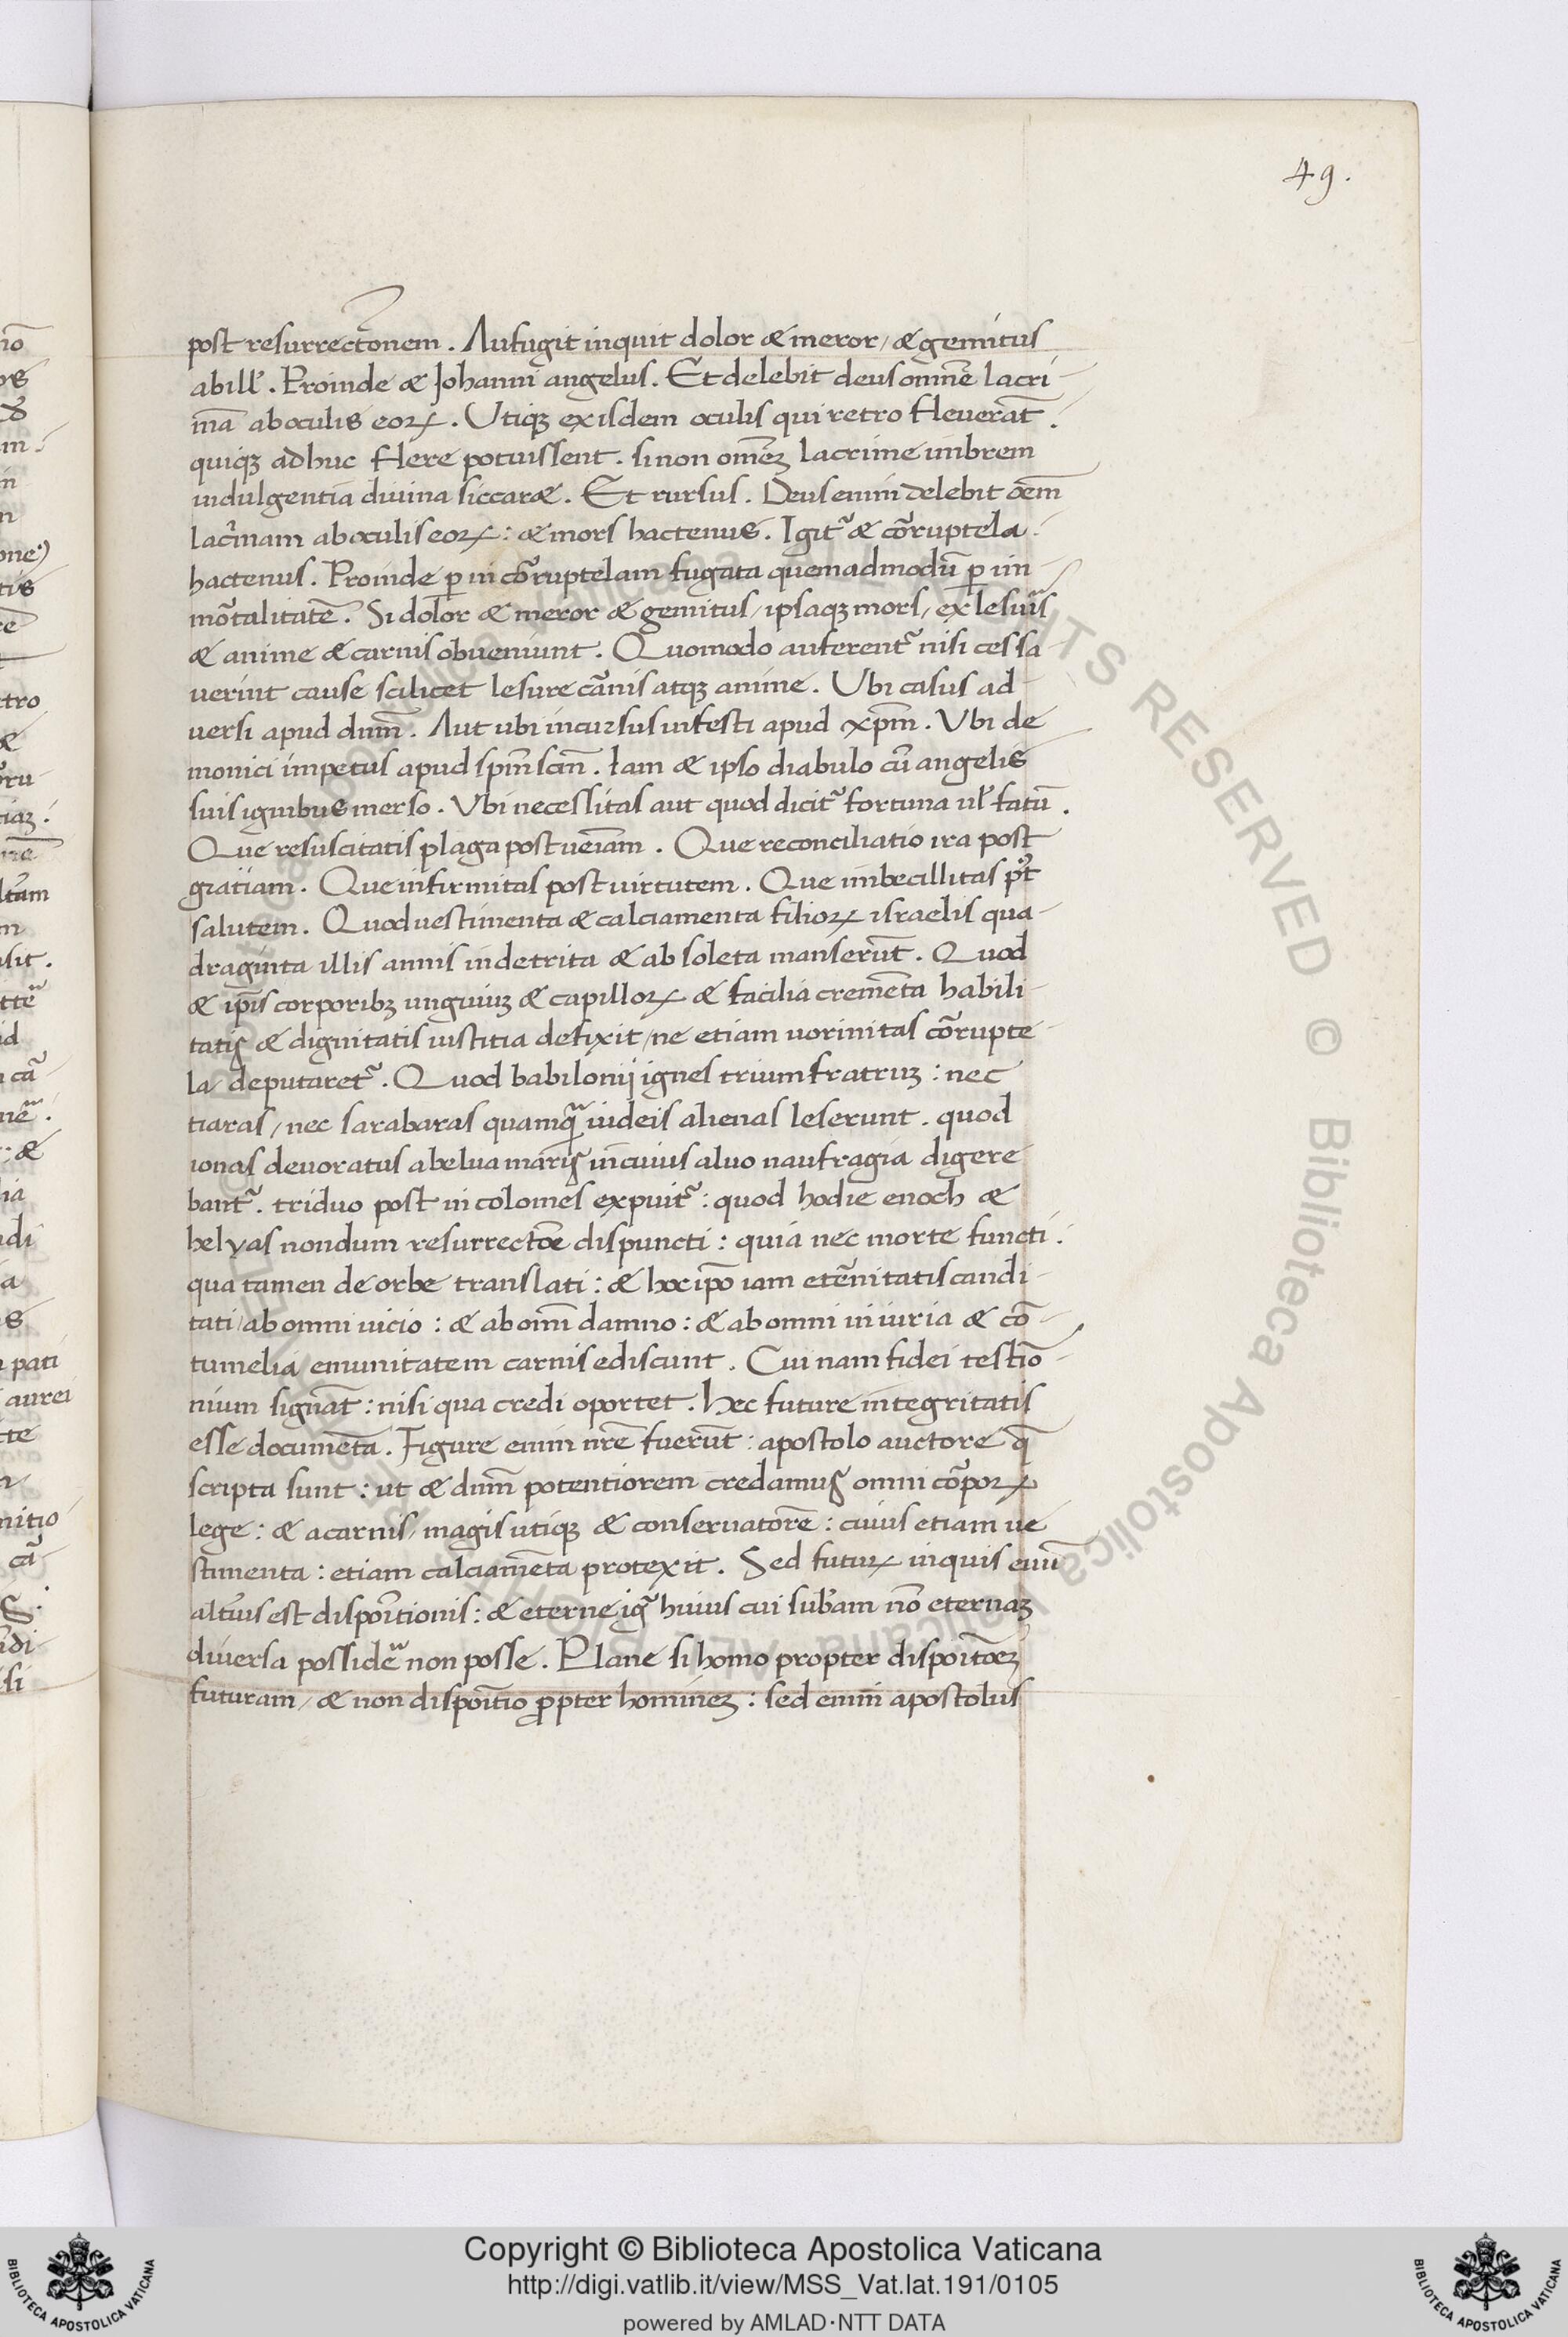 49.
post resurrectõnem. Aufugit inquit dolor & meror / & gemitus
ab ill'. Proinde & Johanni angelus. Et delebit deus omnẽ lacri-
mã ab oculis eoꝝ. Utiqꝫ ex isdem oculis qui retro fleuerãt.
quiqꝫ adhuc flere potuissent. si non omẽꝫ lacrime imbrem
indulgentia diuina siccar&. Et rursus. Deus enim delebit oẽm
lacrimam ab oculis eoꝝ: & mors hactenus. Igit᷑ & cõruptela
hactenus. Proinde ꝑ in cõruptelam fugata quemadmodũ ꝑ im-
mõtalitatẽ. Si dolor & meror & gemitus / ipsaqꝫ mors / ex lesuris
& anime & carnis obueniunt. Quomodo auferent᷑ nisi cessa-
uerint cause scilicet lesure cãnis atqꝫ anime. Ubi casus ad-
uersi apud dnm̃. Aut ubi incursus infesti apud xpm̃. Ubi de
monici impetus apud spm̃ scm̃. Iam & ipso diabulo cũ angelis
suis ignibus merso. Ubi necessitas aut quod dicit᷑ fortuna ul' fatũ.
Que resuscitatis plaga post ueĩam. Que reconciliatio ira post
gratiam. Que infirmitas post uirtutem. Que imbecillitas p᷒t
salutem. Quod uestimenta & calciamenta filioꝝ israelis qua-
draginta illis annis indetrita & absoleta manserũt. Quod
& ip̃is corporibꝫ unguiuꝫ & capilloꝝ & facilia cremẽta habili-
tatis & dignitatis iustitia defixit / ne etiam uorinitas cõrupte-
la deputaret᷑. Quod babilonij ignes trium fratruꝫ: nec
tiaras / nec sarabaras quamqᷓ iudeis alienas leserunt. quod
ionas deuoratus a belua maris in cuius aluo naufragia digere
bant᷑. triduo post incolomes expuit᷑: quod hodie enoch &
helyas nondum resurrectõe dispuncti: quia nec morte functi.
qua tamen de orbe translati: & hoc ip̃o iam etẽnitatis candi-
tati / ab omni uicio: & ab omĩ damno: & ab omni iniuria & cõ-
tumelia emunitatem carnis ediscunt. Cui nam fidei testĩo-
nium signãt: nisi qua credi oportet. Hec future integritatis
esse documẽta. Figure enim nrẽ fuerũt: apostolo auctore q̃
scripta sunt: ut & dnm̃ potentiorem credamus omni cõpoꝝ
lege: & a carnis / magis utiqꝫ & conseruatorẽ: cuius etiam ue
stimenta: etiam calciamẽta protexit. Sed futuꝝ inquis euũ
altĩus est dispoĩtionis: & eterne igᷓ huius cui sub'am nõ eternaꝫ
diuersa possidẽ non posse. Plane si homo propter dispoĩtõeꝫ
futuram / & non dispoĩtio ꝓpter homineꝫ: sed enim apostolus
RIGHTS RESERVED © Biblioteca Apostolica Vaticana
Copyright © Biblioteca Apostolica Vaticana
http://digi.vatlib.it/view/MSS_Vat.lat.191/0105
powered by AMLAD·NTT DATA
BIBLIOTECA APOSTOLICA VATICANA
BIBLIOTECA APOSTOLICA VATICANA